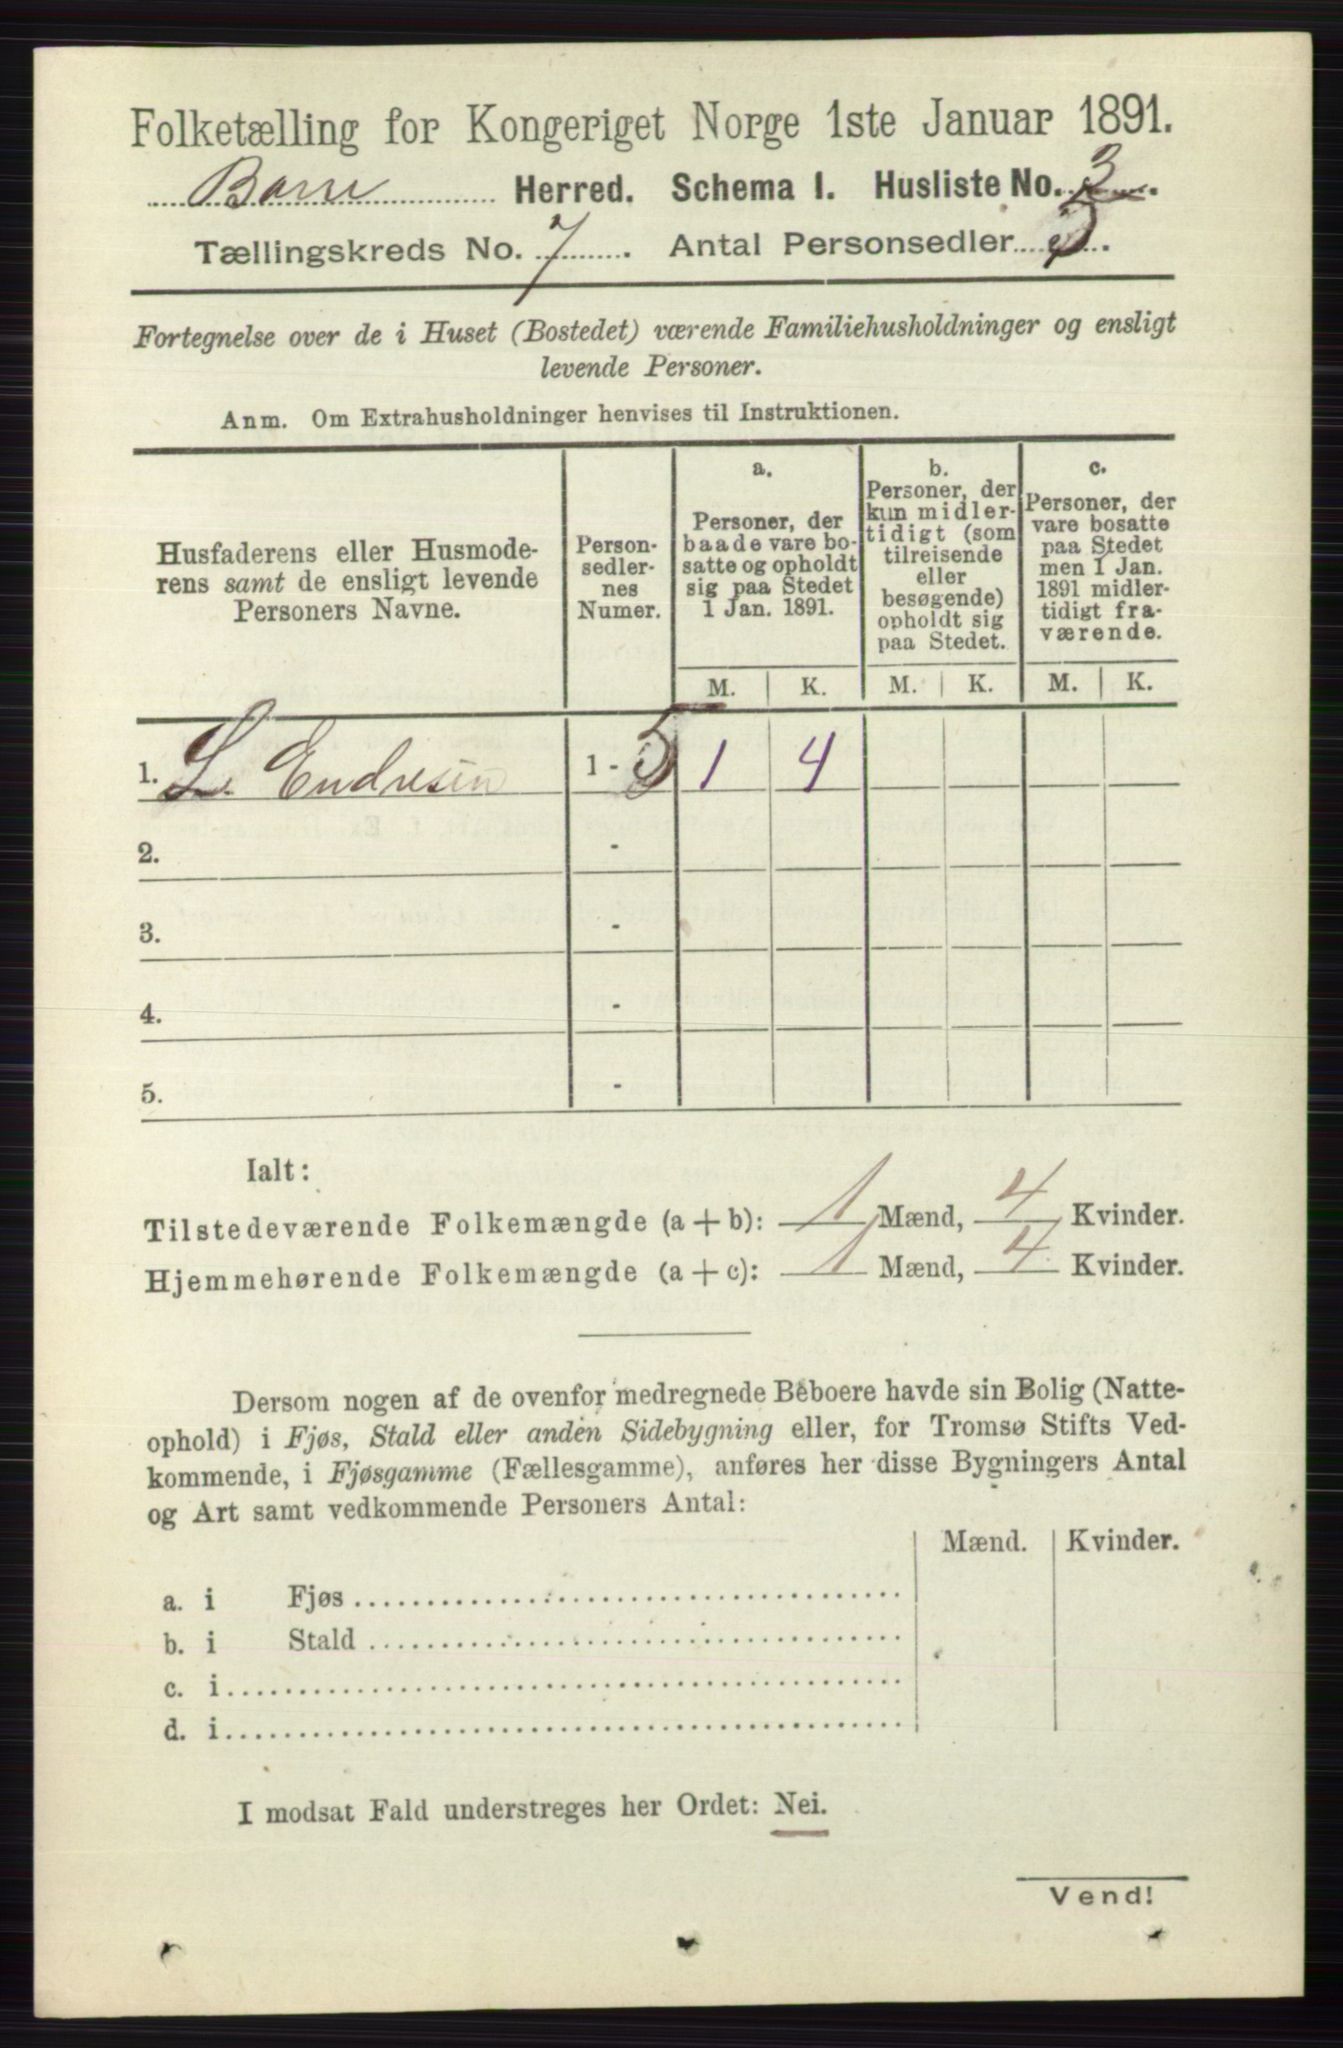 Folketælling for Kongeriget Norge 1ste Januar 1891.
Borre Herred. Schema I. Husliste No. 3.
Tællingskreds No. 7. Antal Personsedler 5.
Fortegnelse over de i Huset (Bostedet) værende Familiehusholdninger og ensligt
levende Personer.
Anm. Om Extrahusholdninger henvises til Instruktionen.
Husfaderens eller Husmode-
rens samt de ensligt levende
Personers Navne.
Person-
sedler-
nes
Numer.
a.
Personer, der
baade vare bo-
satte og opholdt
sig paa Stedet
1 Jan. 1891.
b.
Personer, der
kun midler-
tidigt (som
tilreisende
eller
besøgende)
opholdt sig
paa Stedet.
c.
Personer, der
vare bosatte
paa Stedet
men 1 Jan.
1891 midler-
tidigt fra-
værende.
M. K. M. K. M. K.
1. L. Endresen 1 - 5 1 4
2. -
3. -
4. -
5. -
Ialt:
Tilstedeværende Folkemængde (a + b): 1 Mænd, 4 Kvinder.
Hjemmehørende Folkemængde (a + c): 1 Mænd, 4 Kvinder.
Dersom nogen af de ovenfor medregnede Beboere havde sin Bolig (Natte-
ophold) i Fjøs, Stald eller anden Sidebygning eller, for Tromsø Stifts Ved-
kommende, i Fjøsgamme (Fællesgamme), anføres her disse Bygningers Antal
og Art samt vedkommende Personers Antal:
Mænd. Kvinder.
a. i Fjøs
b. i Stald
c. i
d. i
I modsat Fald understreges her Ordet: Nei.
Vend!